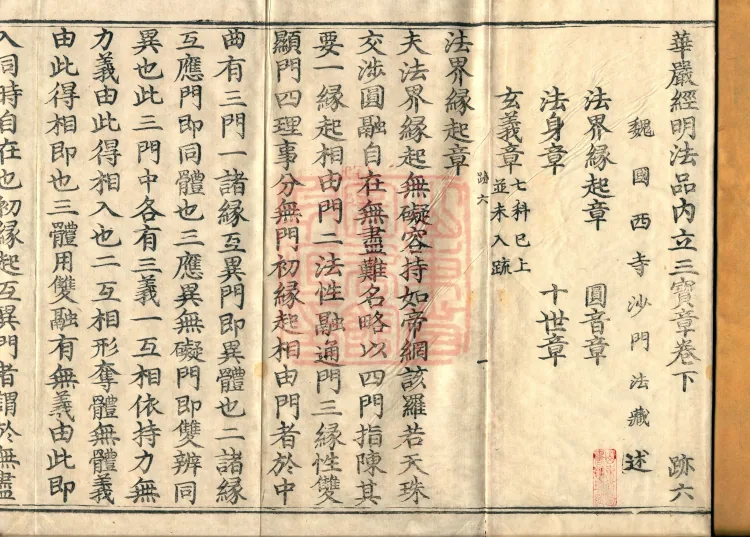 華嚴經明法品內立三寶章卷下 跡六
魏國西寺沙門法藏述
法界緣起章 圓音章
法身章 十世章
玄義章 七科已上
並未入疏
跡六
一
法界緣起章
夫法界緣起無礙容持如帝網該羅若天珠
交涉圓融自在無盡難名略以四門指陳其
要一緣起相由門二法性融通門三緣性雙
顯門四理事分無門初緣起相由門者於中
曲有三門一諸緣互異門即異體也二諸緣
互應門即同體也三應異無礙門即雙辨同
異也此三門中各有三義一互相依持力無
力義由此得相入也二互相形奪體無體義
由此得相即也三體用雙融有無義由此即
入同時自在也初緣起互異門者謂於無盡